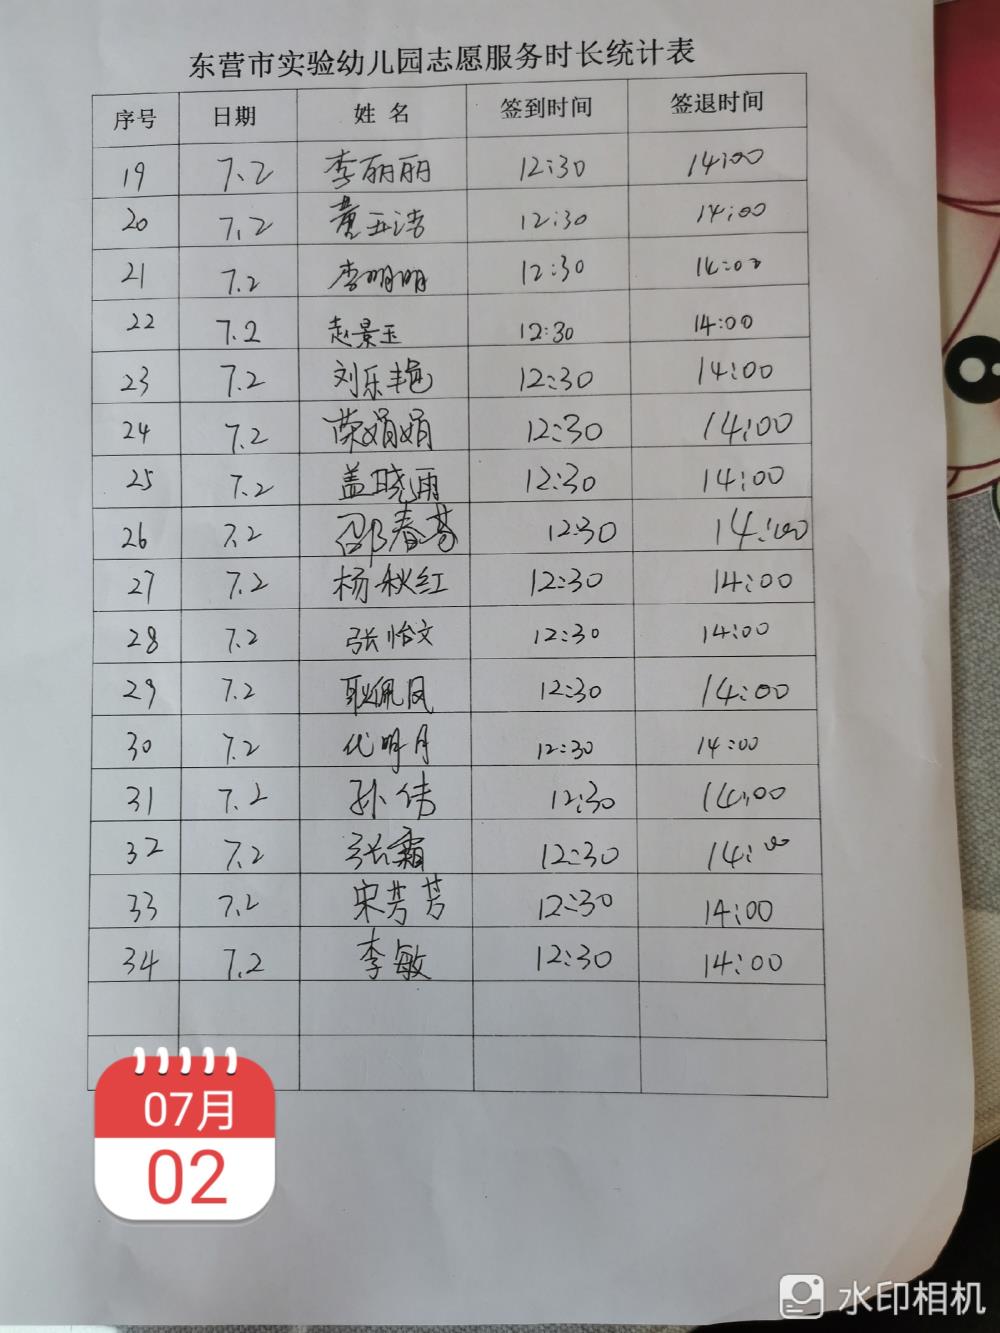 东营市实验幼儿园志愿服务时长统计表
序号 日期 姓名 签到时间 签退时间
19 7.2 李丽丽 12:30 14:00
20 7.2 黄玉洁 12:30 14:00
21 7.2 李明明 12:30 14:00
22 7.2 赵景玉 12:30 14:00
23 7.2 刘乐艳 12:30 14:00
24 7.2 荣娟娟 12:30 14:00
25 7.2 盖晓雨 12:30 14:00
26 7.2 邵春 12:30 14:00
27 7.2 杨秋红 12:30 14:00
28 7.2 张怡文 12:30 14:00
29 7.2 耿佩凤 12:30 14:00
30 7.2 代明月 12:30 14:00
31 7.2 孙伟 12:30 14:00
32 7.2 张霜 12:30 14:00
33 7.2 宋芳芳 12:30 14:00
34 7.2 李敏 12:30 14:00
07月
02
水印相机